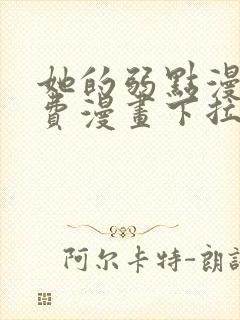 她的弱點漫
費漫畫下拉
阿尔卡特-朗